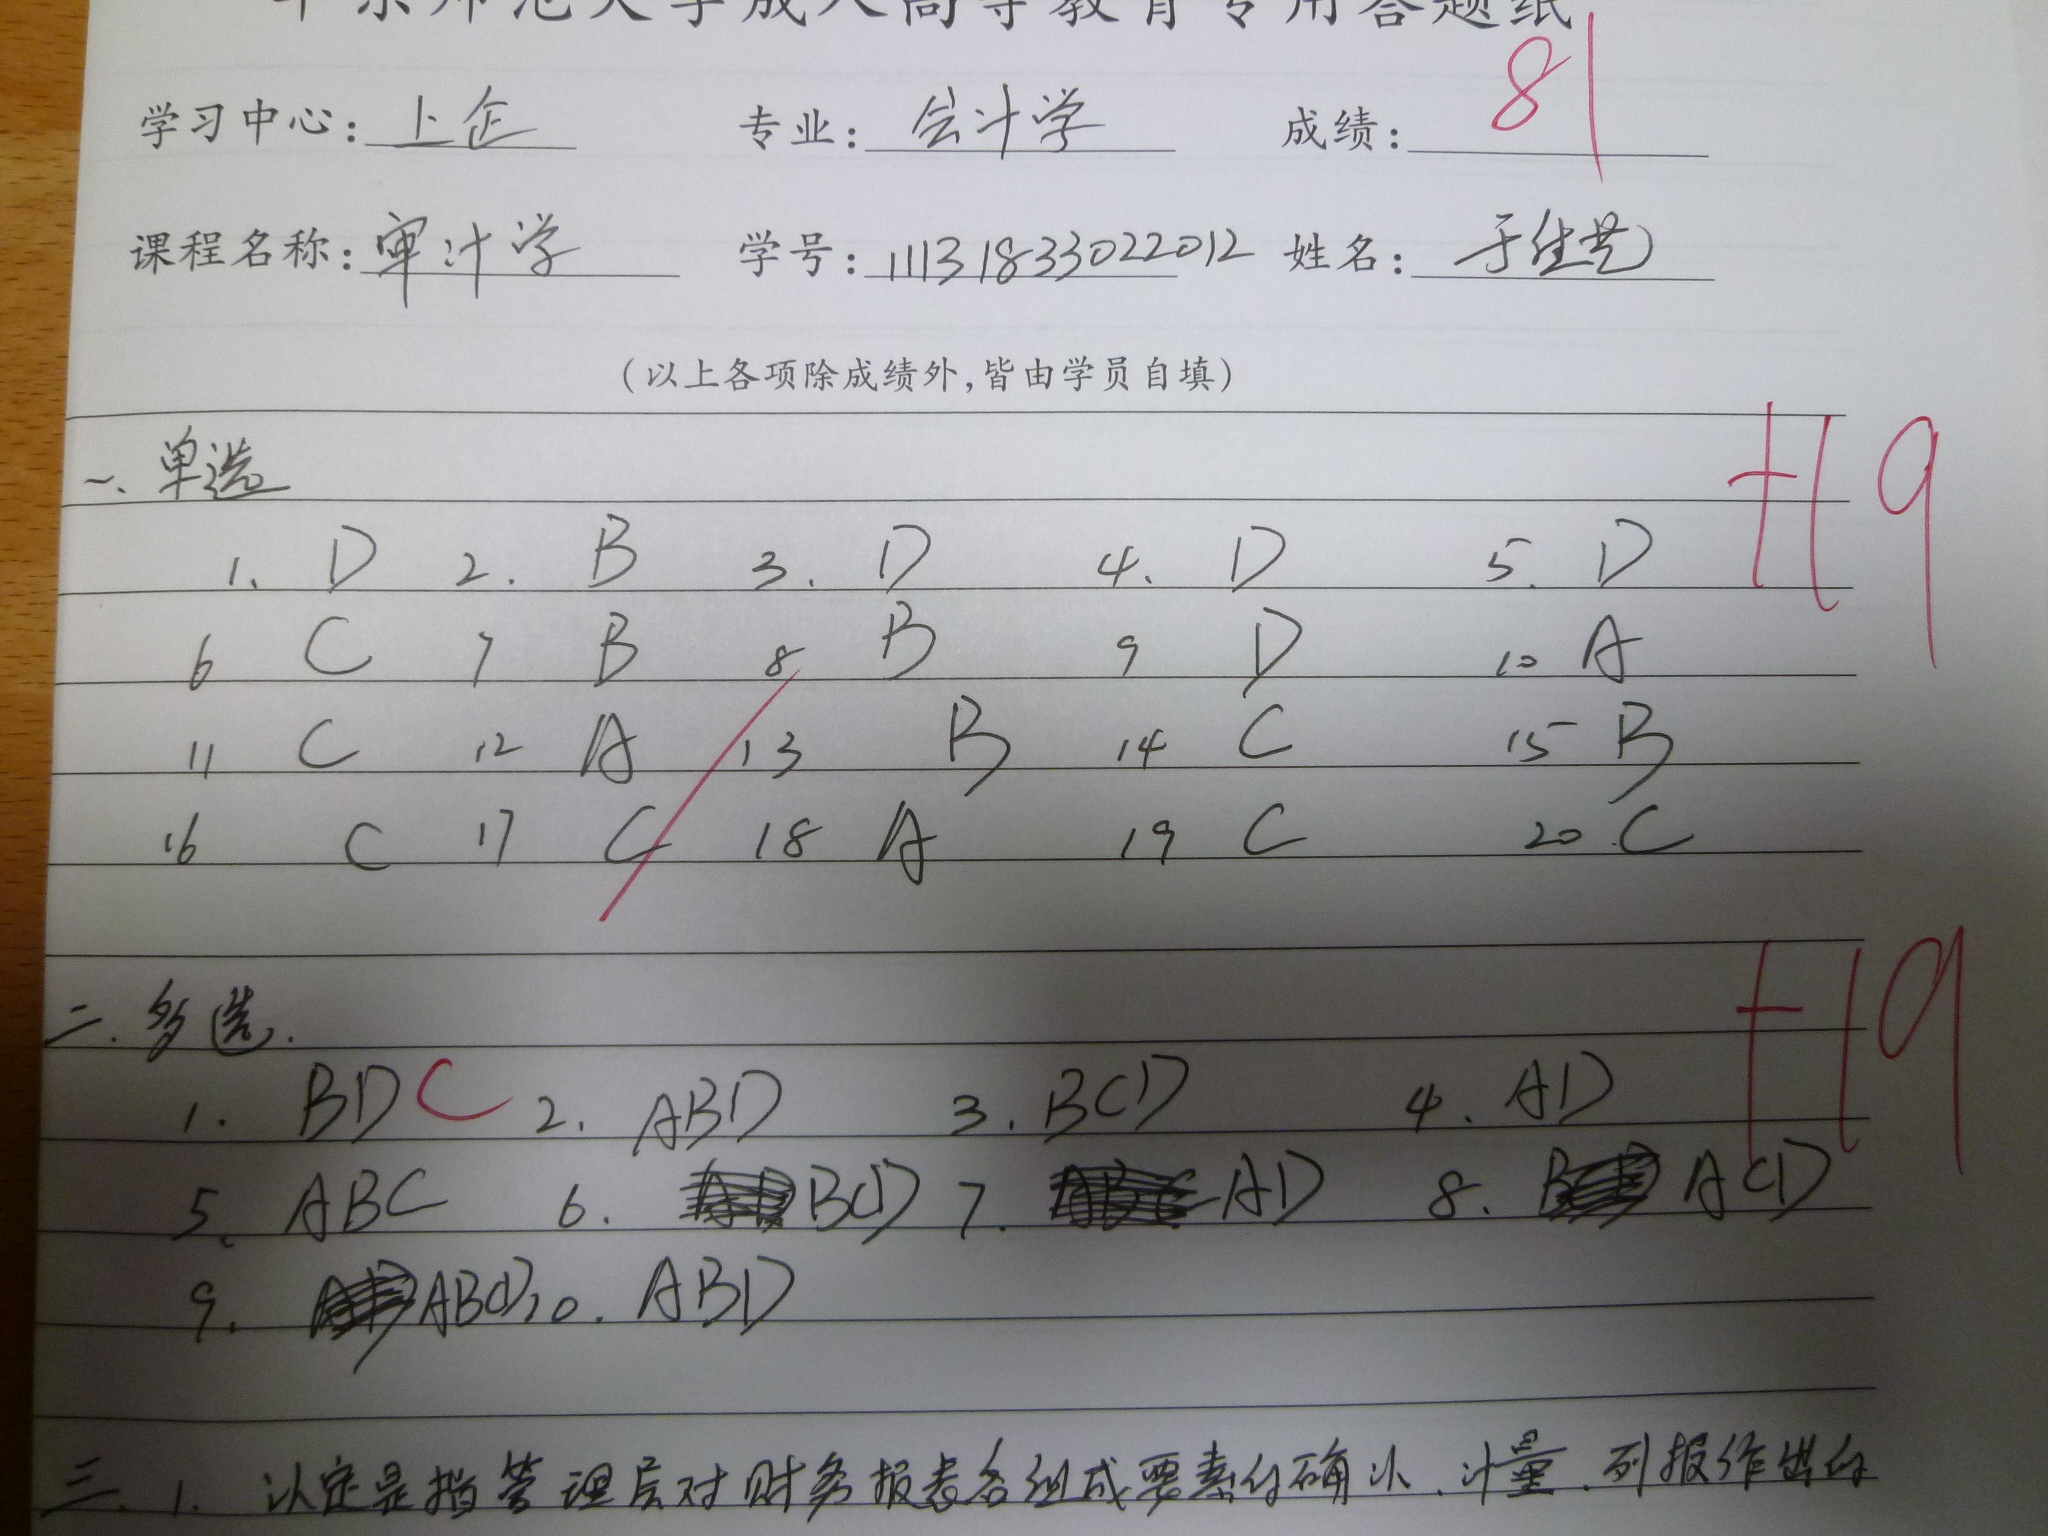 华东师范大学成人高等教育专用答题纸
学习中心: 上企 专业: 会计学 成绩: 81
课程名称: 审计学 学号: 11131833022012 姓名: 于佳艺
(以上各项除成绩外,皆由学员自填)
一、单选 +19
1. D 2. B 3. D 4. D 5. D
6 C 7 B 8 B 9 D 10 A
11 C 12 A 13 B 14 C 15 B
16 C 17 C 18 A 19 C 20 C
二.多选. +19
1. BDC 2. ABD 3. BCD 4. AD
5. ABC 6. BCD 7. AD 8. ACD
9. ABCD 10. ABD
三.1. 认定是指管理层对财务报表各组成要素的确认、计量、列报作出的